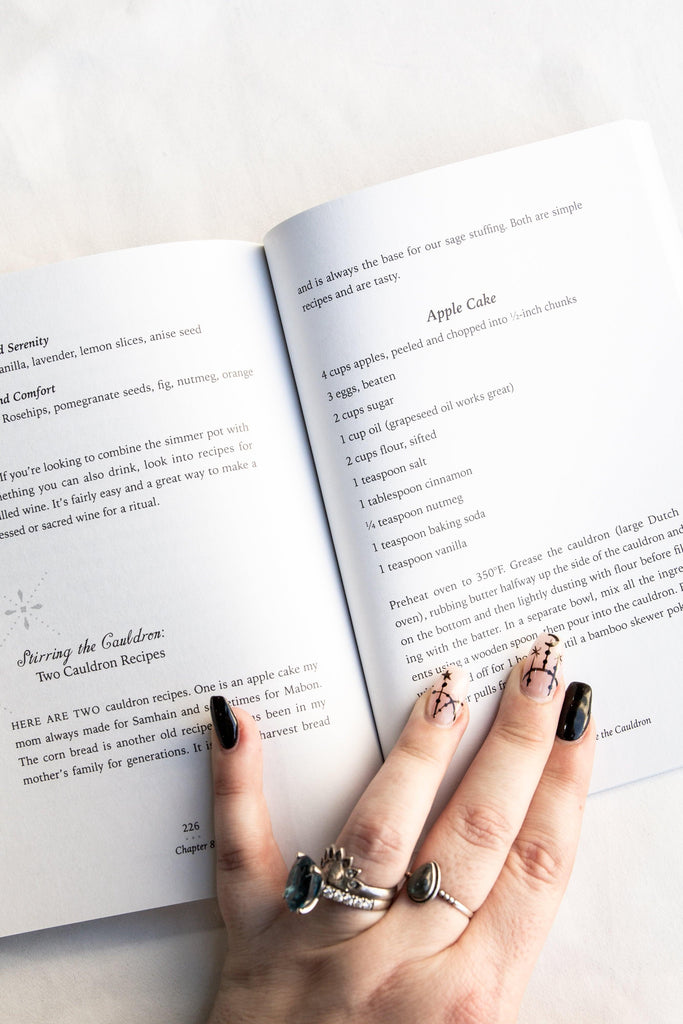 d Serenity
anilla, lavender, lemon slices, anise seed
nd Comfort
Rosehips, pomegranate seeds, fig, nutmeg, orange
If you're looking to combine the simmer pot with
mething you can also drink, look into recipes for
lled wine. It's fairly easy and a great way to make a
essed or sacred wine for a ritual.
Stirring the Cauldron:
Two Cauldron Recipes
HERE ARE TWO cauldron recipes. One is an apple cake my
mom always made for Samhain and sometimes for Mabon.
The corn bread is another old recipe has been in my
mother's family for generations. It is harvest bread
226
Chapter 8
and is always the base for our sage stuffing. Both are simple
recipes and are tasty.
Apple Cake
4 cups apples, peeled and chopped into ½-inch chunks
3 eggs, beaten
2 cups sugar
1 cup oil (grapeseed oil works great)
2 cups flour, sifted
1 teaspoon salt
1 tablespoon cinnamon
¼ teaspoon nutmeg
1 teaspoon baking soda
1 teaspoon vanilla
Preheat oven to 350°F. Grease the cauldron (large Dutch
oven), rubbing butter halfway up the side of the cauldron and
on the bottom and then lightly dusting with flour before fil
ing with the batter. In a separate bowl, mix all the ingre
ents using a wooden spoon then pour into the cauldron.
d off for 1 til a bamboo skewer pok
pulls f
e the Cauldron